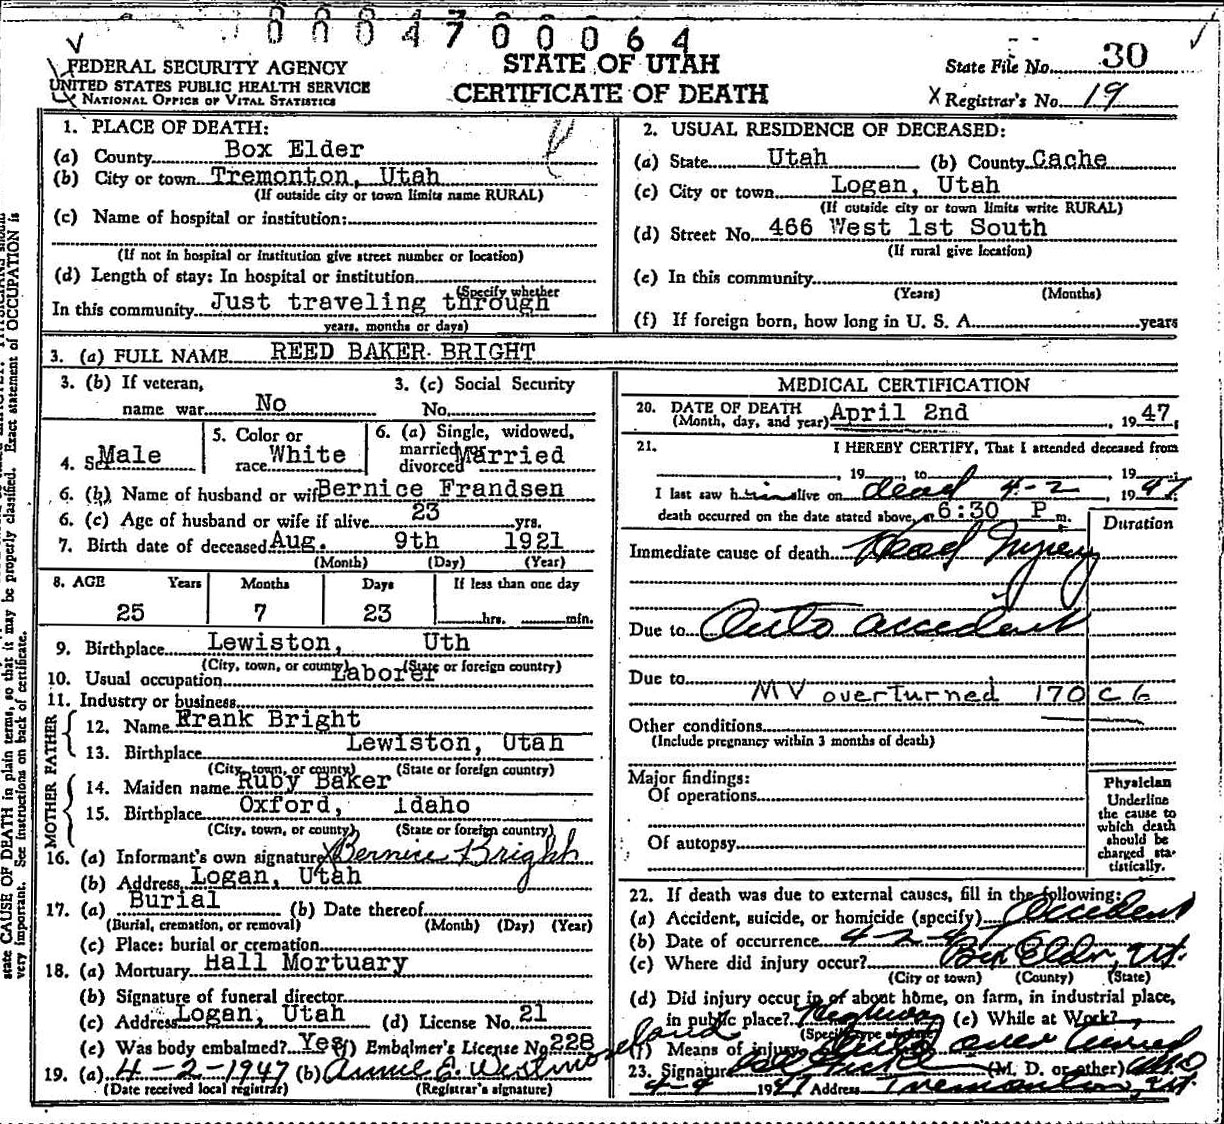 0004700064
STATE OF UTAH
CERTIFICATE OF DEATH
FEDERAL SECURITY AGENCY
UNITED STATES PUBLIC HEALTH SERVICE
NATIONAL OFFICE OF VITAL STATISTICS
State File No. 30
X Registrar's No. 19
1. PLACE OF DEATH:
(a) County Box Elder
(b) City or town Tremonton, Utah
(If outside city or town limits name RURAL)
(c) Name of hospital or institution:
(If not in hospital or institution give street number or location)
(d) Length of stay: In hospital or institution
(Specify whether
In this community Just traveling through
years, months or days)
2. USUAL RESIDENCE OF DECEASED:
(a) State Utah (b) County Cache
(c) City or town Logan, Utah
(If outside city or town limits write RURAL)
(d) Street No. 466 West 1st South
(If rural give location)
(e) In this community
(Years) (Months)
(f) If foreign born, how long in U. S. A. years
3. (a) FULL NAME REED BAKER BRIGHT
3. (b) If veteran, name war No
3. (c) Social Security No.
4. Sex Male
5. Color or race White
6. (a) Single, widowed, married or divorced Married
6. (b) Name of husband or wife Bernice Frandsen
6. (c) Age of husband or wife if alive 23 yrs.
7. Birth date of deceased Aug. 9th 1921
(Month) (Day) (Year)
8. AGE Years Months Days If less than one day
25 7 23 hrs. min.
9. Birthplace Lewiston, Uth
(City, town, or county) (State or foreign country)
10. Usual occupation Laborer
11. Industry or business
FATHER
12. Name Frank Bright
13. Birthplace Lewiston, Utah
(City, town, or county) (State or foreign country)
MOTHER
14. Maiden name Ruby Baker
15. Birthplace Oxford, Idaho
(City, town, or county) (State or foreign country)
16. (a) Informant's own signature X Bernice Bright
(b) Address Logan, Utah
17. (a) Burial (b) Date thereof
(Burial, cremation, or removal) (Month) (Day) (Year)
(c) Place: burial or cremation
18. (a) Mortuary Hall Mortuary
(b) Signature of funeral director
(c) Address Logan, Utah (d) License No. 21
(e) Was body embalmed? Yes (f) Embalmer's License No. 228
19. (a) 4-2-1947 (b) Annie E. Westmoreland
(Date received local registrar) (Registrar's signature)
MEDICAL CERTIFICATION
20. DATE OF DEATH
(Month, day, and year) April 2nd, 1947.
21. I HEREBY CERTIFY, That I attended deceased from
, 19 , to , 19 ;
I last saw him alive on dead 4-2, 1947
death occurred on the date stated above, at 6:30 P m.
Duration
Immediate cause of death Head Injury
Due to Auto accident
Due to
MV overturned 170 C 6
Other conditions
(Include pregnancy within 3 months of death)
Major findings:
Of operations
Of autopsy
Physician
Underline
the cause to
which death
should be
charged sta-
tistically.
22. If death was due to external causes, fill in the following:
(a) Accident, suicide, or homicide (specify) Accident
(b) Date of occurrence 4-2-47
(c) Where did injury occur? Box Elder, Ut.
(City or town) (County) (State)
(d) Did injury occur in or about home, on farm, in industrial place,
in public place? Highway (e) While at Work?
(Specify type of place)
(f) Means of injury Auto over turned
23. Signature (M. D. or other) MD
4-4 1947 Address Tremonton, Ut.
state CAUSE OF DEATH in plain terms, so that it may be properly classified. Exact statement of OCCUPATION is
very important. See instructions on back of certificate.